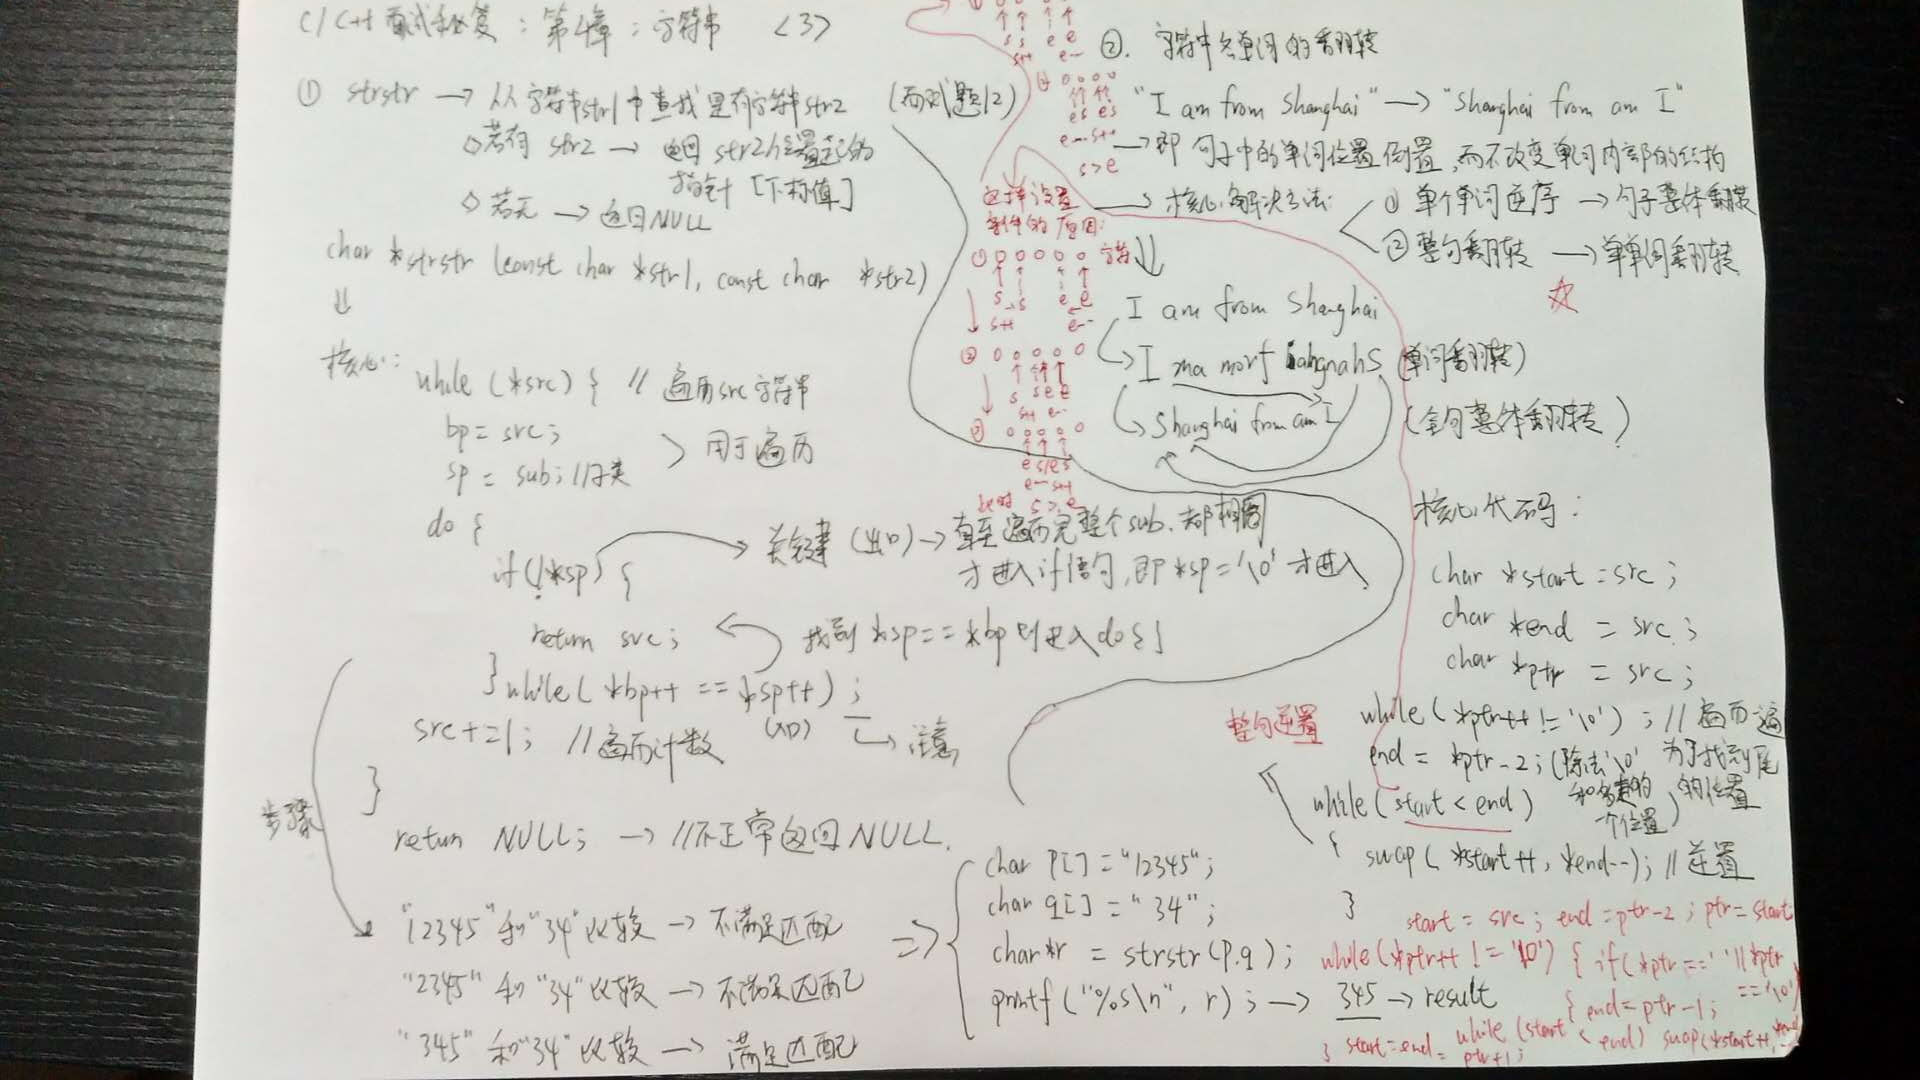 C/C++面试秘笈：第4章：字符串 <3>
① strstr → 从字符串str1中查找是否有字符串str2 (面试题12)
◇若有 str2 → 返回 str2位置起的
指针 [下标值]
◇若无 → 返回NULL
char *strstr (const char *str1, const char *str2)
⇓
核心: while (*src) { // 遍历src字符串
bp = src;
sp = sub; //子类
> 用于遍历
do {
if(!*sp) {
关键 (出口) → 直至遍历完整个sub.都相同
才进入if语句,即 *sp='\0' 才进入
return src; 找到 *sp == *bp 则进入 do{}
} while( *bp++ == *sp++ );
src+=1; //遍历计数
→ 注意
}
return NULL; → //不正常返回NULL.
步骤
"12345"和"34"比较 → 不满足匹配
"2345" 和 "34"比较 → 不满足匹配
"345" 和"34"比较 → 满足匹配
⇒ {
char p[] = "12345";
char q[] = "34";
char*r = strstr(p.q);
printf("%s\n", r); → 345 → result
②. 字符串各单词的翻转
"I am from Shanghai" → "Shanghai from am I"
→即 句子中的单词位置倒置,而不改变单词内部的结构
→ 核心解决方法:
① 单个单词逆序 → 句子整体翻转
② 整句翻转 → 单单词翻转
☆
I am from Shanghai
I ma morf iahgnahS (单词翻转)
Shanghai from am I (全句整体翻转)
这样设置
条件的原因:
① o o o o o 字符
s s e e
s++ e--
② o o o o o
s s e e
s++ e--
③ o o o o o
e s/e s
e-- s++
此时 s > e
s s e e
s++ e--
o o o o
e s e s
e-- s++
s>e
核心代码:
char *start = src;
char *end = src;
char *ptr = src;
while( *ptr++ != '\0') ; // 遍历一遍
end = *ptr-2; (除去'\0' 为了找到尾
的位置
一个位置)
整句逆置
while( start < end )
{ swap( *start++, *end--); // 逆置
}
start = src; end = ptr-2; ptr = start;
while(*ptr++ != '\0') { if(*ptr == ' ' || *ptr
== '\0')
{ end = ptr-1;
while (start < end) swap(*start++, *end--
} start=end= ptr+1;